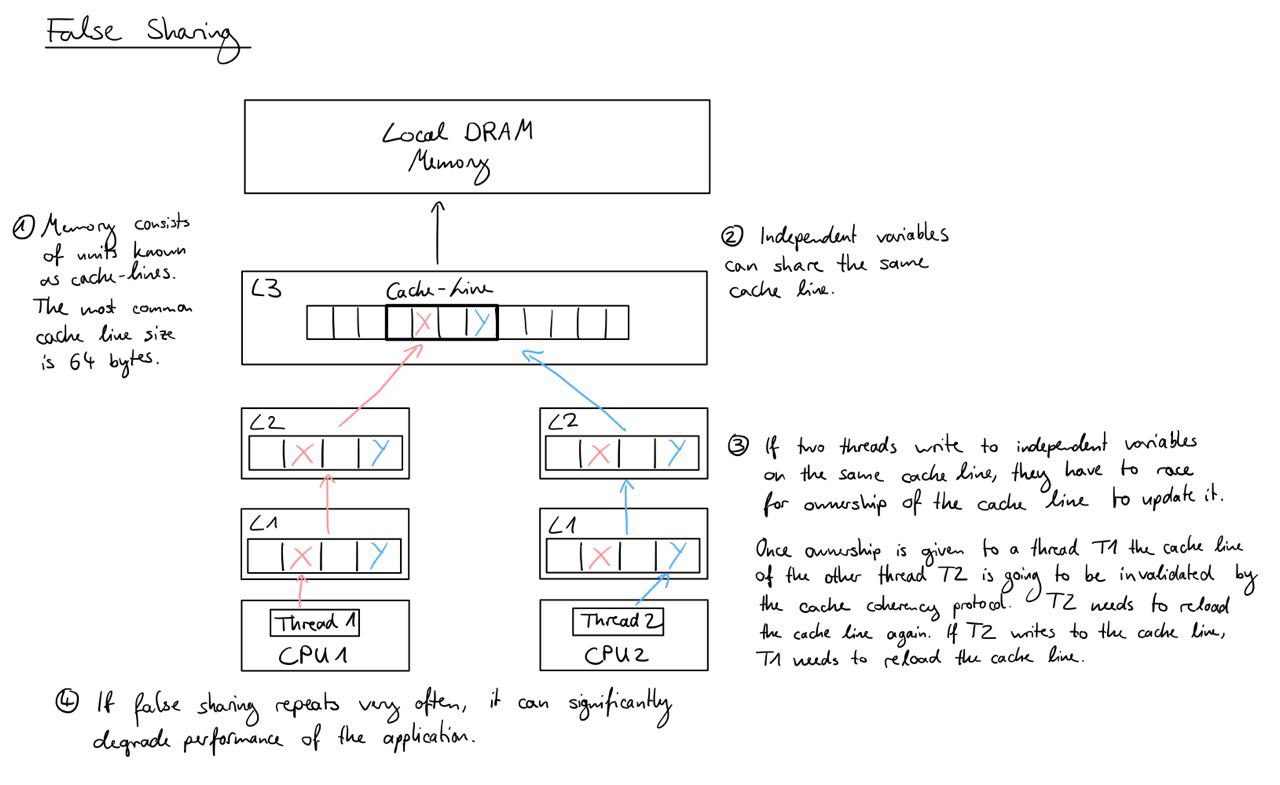 False Sharing
Local DRAM
Memory
① Memory consists
of units known
as cache-lines.
The most common
cache line size
is 64 bytes.
② Independent variables
can share the same
cache line.
L3
Cache-Line
X Y
L2
X Y
L2
X Y
L1
X Y
L1
X Y
Thread 1
CPU1
Thread 2
CPU2
③ If two threads write to independent variables
on the same cache line, they have to race
for ownership of the cache line to update it.
Once ownership is given to a thread T1 the cache line
of the other thread T2 is going to be invalidated by
the cache coherency protocol. T2 needs to reload
the cache line again. If T2 writes to the cache line,
T1 needs to reload the cache line.
④ If false sharing repeats very often, it can significantly
degrade performance of the application.